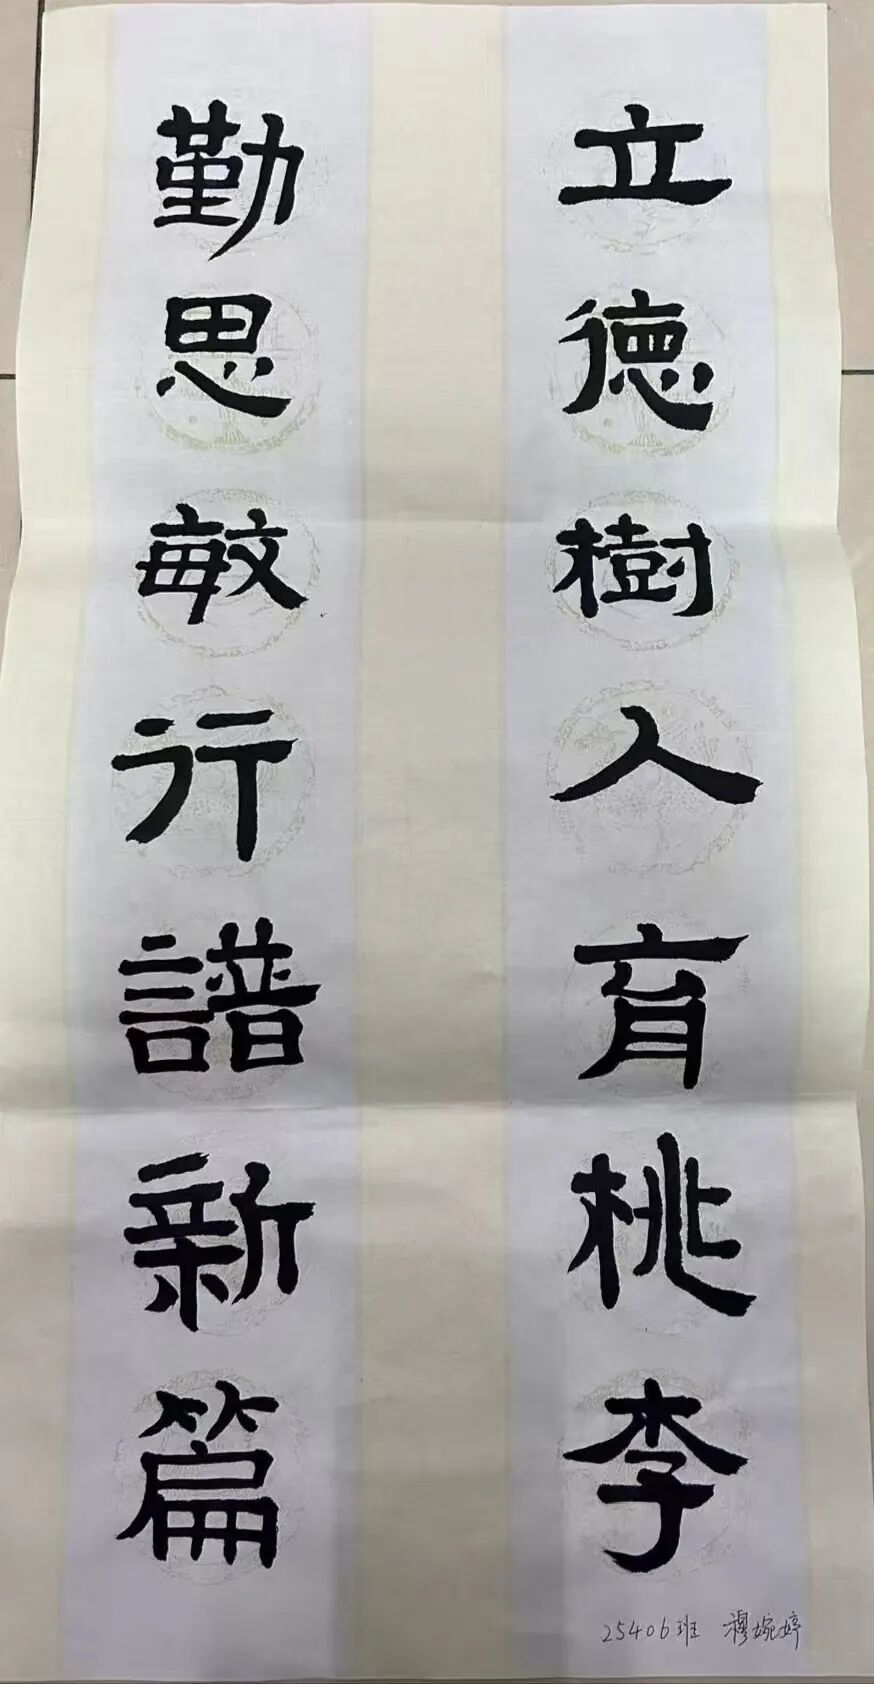 立德樹人育桃李
勤思敏行譜新篇
25406班 穆婉婷